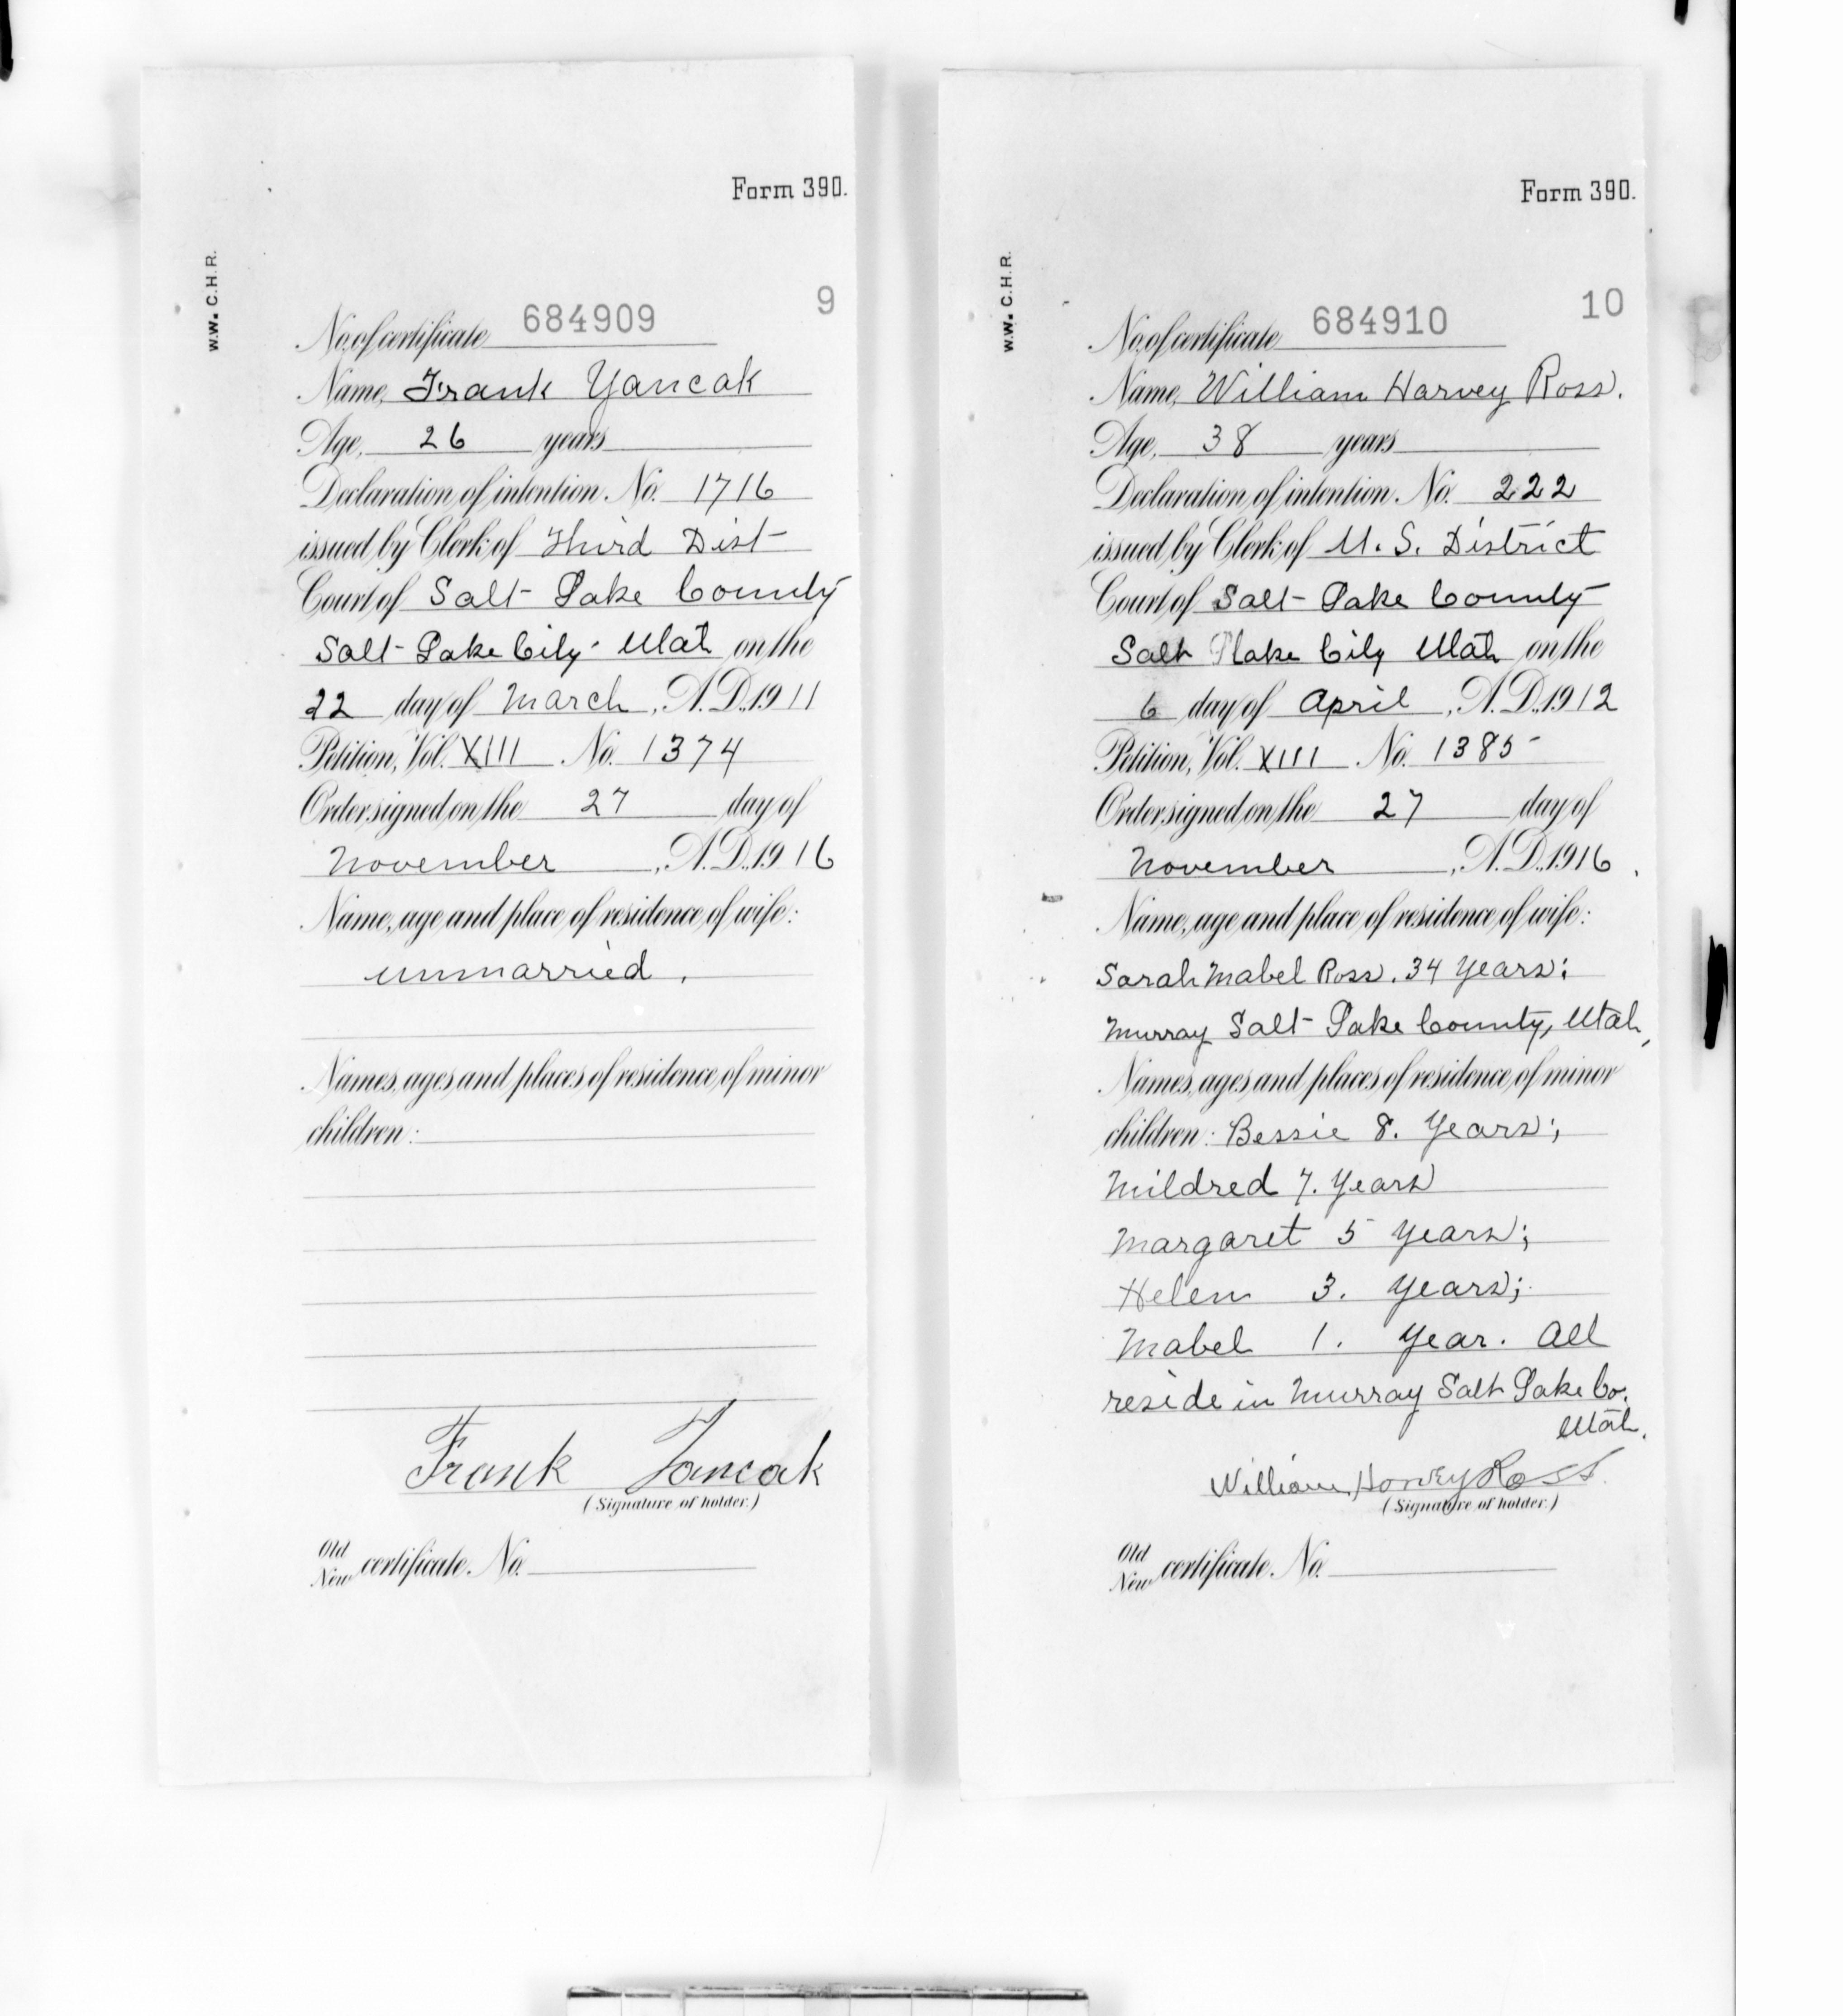 Form 390.
W.W. C.H.R.
9
No. of certificate 684909
Name, Frank Yancak
Age, 26 years
Declaration of intention No. 1716
issued by Clerk of Third Dist
Court of Salt Lake County
Salt Lake City Utah on the
22 day of March, A.D. 1911
Petition, Vol. XIII No. 1374
Order signed on the 27 day of
November, A.D. 1916
Name, age and place of residence of wife:
unmarried.
Names, ages and places of residence of minor
children:
Frank Yancak
(Signature of holder.)
Old
New certificate No.
Form 390.
W.W. C.H.R.
10
No. of certificate 684910
Name, William Harvey Ross.
Age, 38 years
Declaration of intention No. 222
issued by Clerk of U. S. District
Court of Salt Lake County
Salt Lake City Utah on the
6 day of April, A.D. 1912
Petition, Vol. XIII No. 1385
Order signed on the 27 day of
November, A.D. 1916.
Name, age and place of residence of wife:
Sarah Mabel Ross. 34 Years;
Murray Salt Lake County, Utah,
Names, ages and places of residence of minor
children: Bessie 8. Years;
Mildred 7. Years
Margaret 5 Years;
Helen 3. Years;
Mabel 1. Year. All
reside in Murray Salt Lake Co.
Utah.
William Harvey Ross.
(Signature of holder.)
Old
New certificate No.